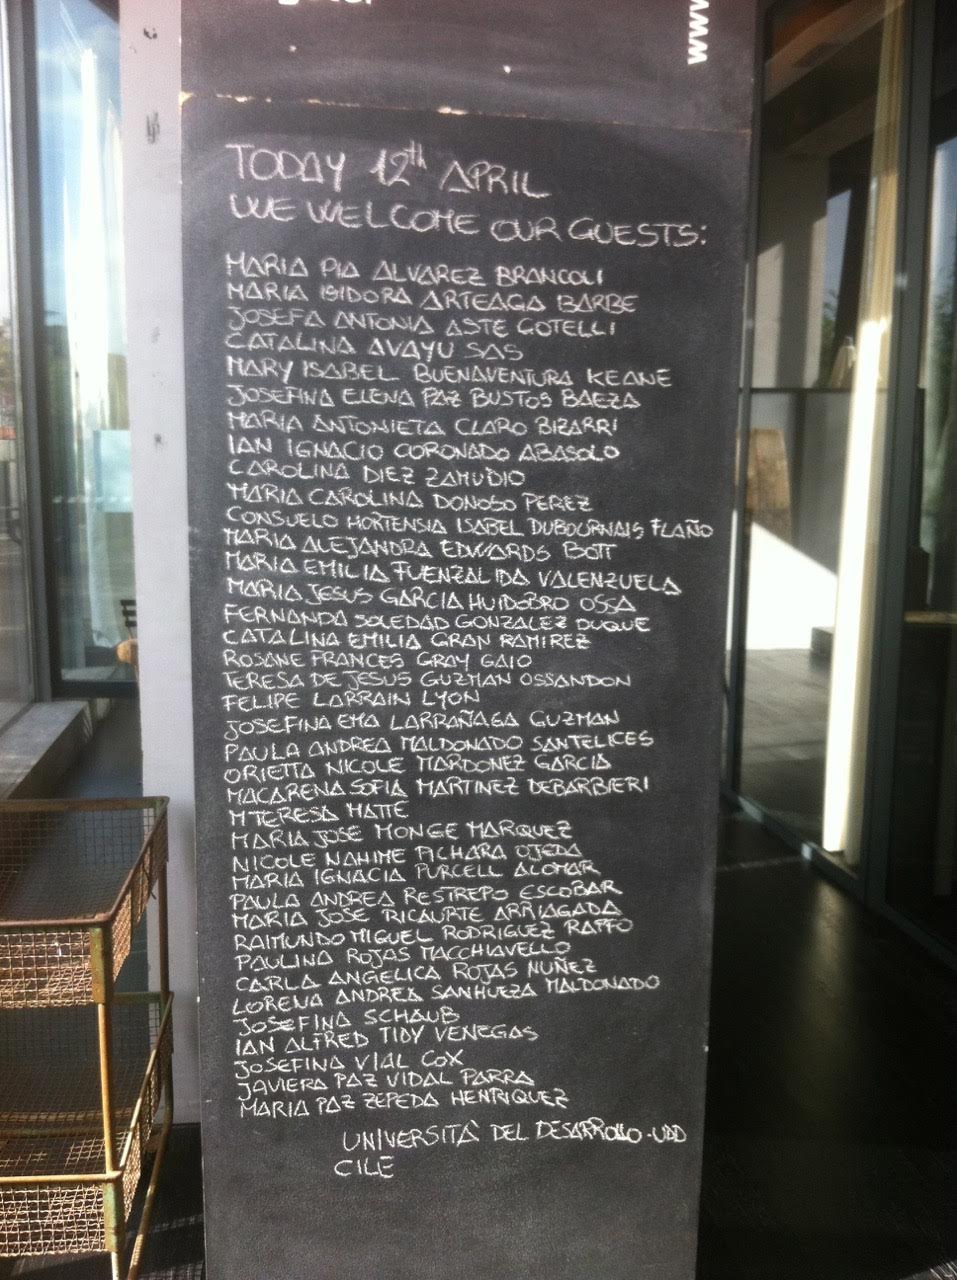 www
TODAY 12th APRIL
WE WELCOME OUR GUESTS:
MARIA PIA ALVAREZ BRANCOLI
MARIA ISIDORA ARTEAGA BARBE
JOSEFA ANTONIA ASTE GOTELLI
CATALINA AVAYU SAS
MARY ISABEL BUENAVENTURA KEANE
JOSEFINA ELENA PAZ BUSTOS BAEZA
MARIA ANTONIETA CLARO BIZARRI
IAN IGNACIO CORONADO ABASOLO
CAROLINA DIEZ ZAMUDIO
MARIA CAROLINA DONOSO PEREZ
CONSUELO HORTENSIA ISABEL DUBOURNAIS FLAÑO
MARIA ALEJANDRA EDWARDS BOTT
MARIA EMILIA FUENZALIDA VALENZUELA
MARIA JESUS GARCIA HUIDOBRO OSSA
FERNANDA SOLEDAD GONZALEZ DUQUE
CATALINA EMILIA GRAN RAMIREZ
ROSANE FRANCES GRAY GAIO
TERESA DE JESUS GUZMAN OSSANDON
FELIPE LARRAIN LYON
JOSEFINA EMA LARRAÑAGA GUZMAN
PAULA ANDREA MALDONADO SANTELICES
ORIETTA NICOLE MARDONEZ GARCIA
MACARENA SOFIA MARTINEZ DEBARBIERI
M TERESA MATTE
MARIA JOSE MONGE MARQUEZ
NICOLE NAHIME PICHARA OJEDA
MARIA IGNACIA PURCELL ALOMAR
PAULA ANDREA RESTREPO ESCOBAR
MARIA JOSE RICAURTE ARRIAGADA
RAIMUNDO MIGUEL RODRIGUEZ RAFFO
PAULINA ROJAS MACCHIAVELLO
CARLA ANGELICA ROJAS NUÑEZ
LORENA ANDREA SANHUEZA MALDONADO
JOSEFINA SCHAUB
IAN ALFRED TIDY VENEGAS
JOSEFINA VIAL COX
JAVIERA PAZ VIDAL PARRA
MARIA PAZ ZEPEDA HENRIQUEZ
UNIVERSITÀ DEL DESARROLLO - UDD
CILE